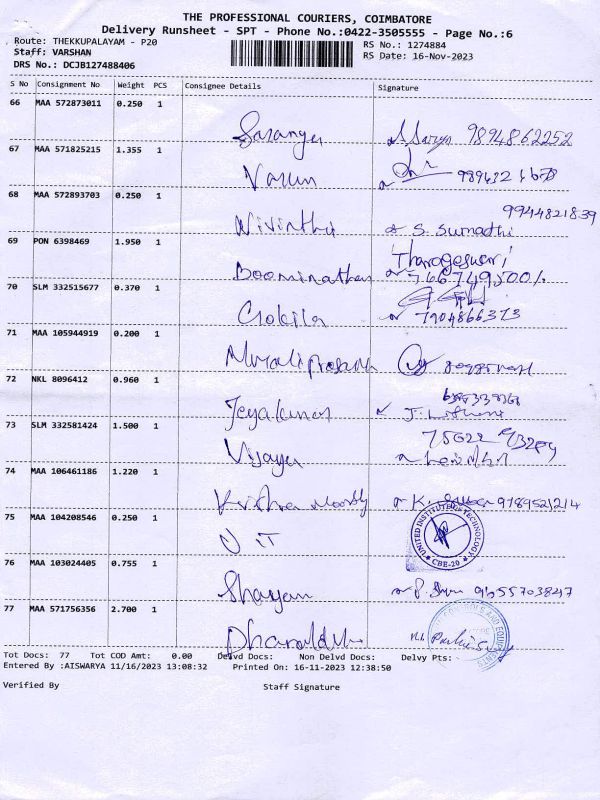 THE PROFESSIONAL COURIERS, COIMBATORE
Delivery Runsheet - SPT - Phone No.:0422-3505555 - Page No.:6
Route: THEKKUPALAYAM - P20
RS No.: 1274884
Staff: VARSHAN
RS Date: 16-Nov-2023
DRS No.: DCJB127488406
S No Consignment No Weight PCS Consignee Details Signature
66 MAA 572873011 0.250 1
Saranya S. Sarya 9894862252
67 MAA 571825215 1.355 1
Varun
68 MAA 572893703 0.250 1
9944821839
Nivintha S. Sumathi
69 PON 6398469 1.950 1
Tharageswari
Boominathan
70 SLM 332515677 0.370 1
Gokila 7904866373
71 MAA 105944919 0.200 1
Muraliprasath
72 NKL 8096412 0.960 1
Jeyakumar
73 SLM 332581424 1.500 1
Vijaya
74 MAA 106461186 1.220 1
Krishna moorthy K. 9789521214
75 MAA 104208546 0.250 1
UIT
UNITED INSTITUTE OF TECHNOLOGY
CBE-20
76 MAA 103024405 0.755 1
Shayam 9655703847
77 MAA 571756356 2.700 1
Tot Docs: 77 Tot COD Amt: 0.00 Delvd Docs: Non Delvd Docs: Delvy Pts:
Entered By :AISWARYA 11/16/2023 13:08:32 Printed On: 16-11-2023 12:38:50
Verified By Staff Signature